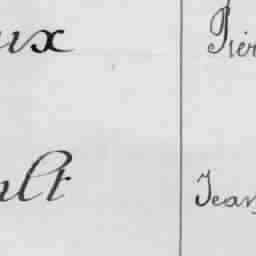 ux Pier
ult Jean